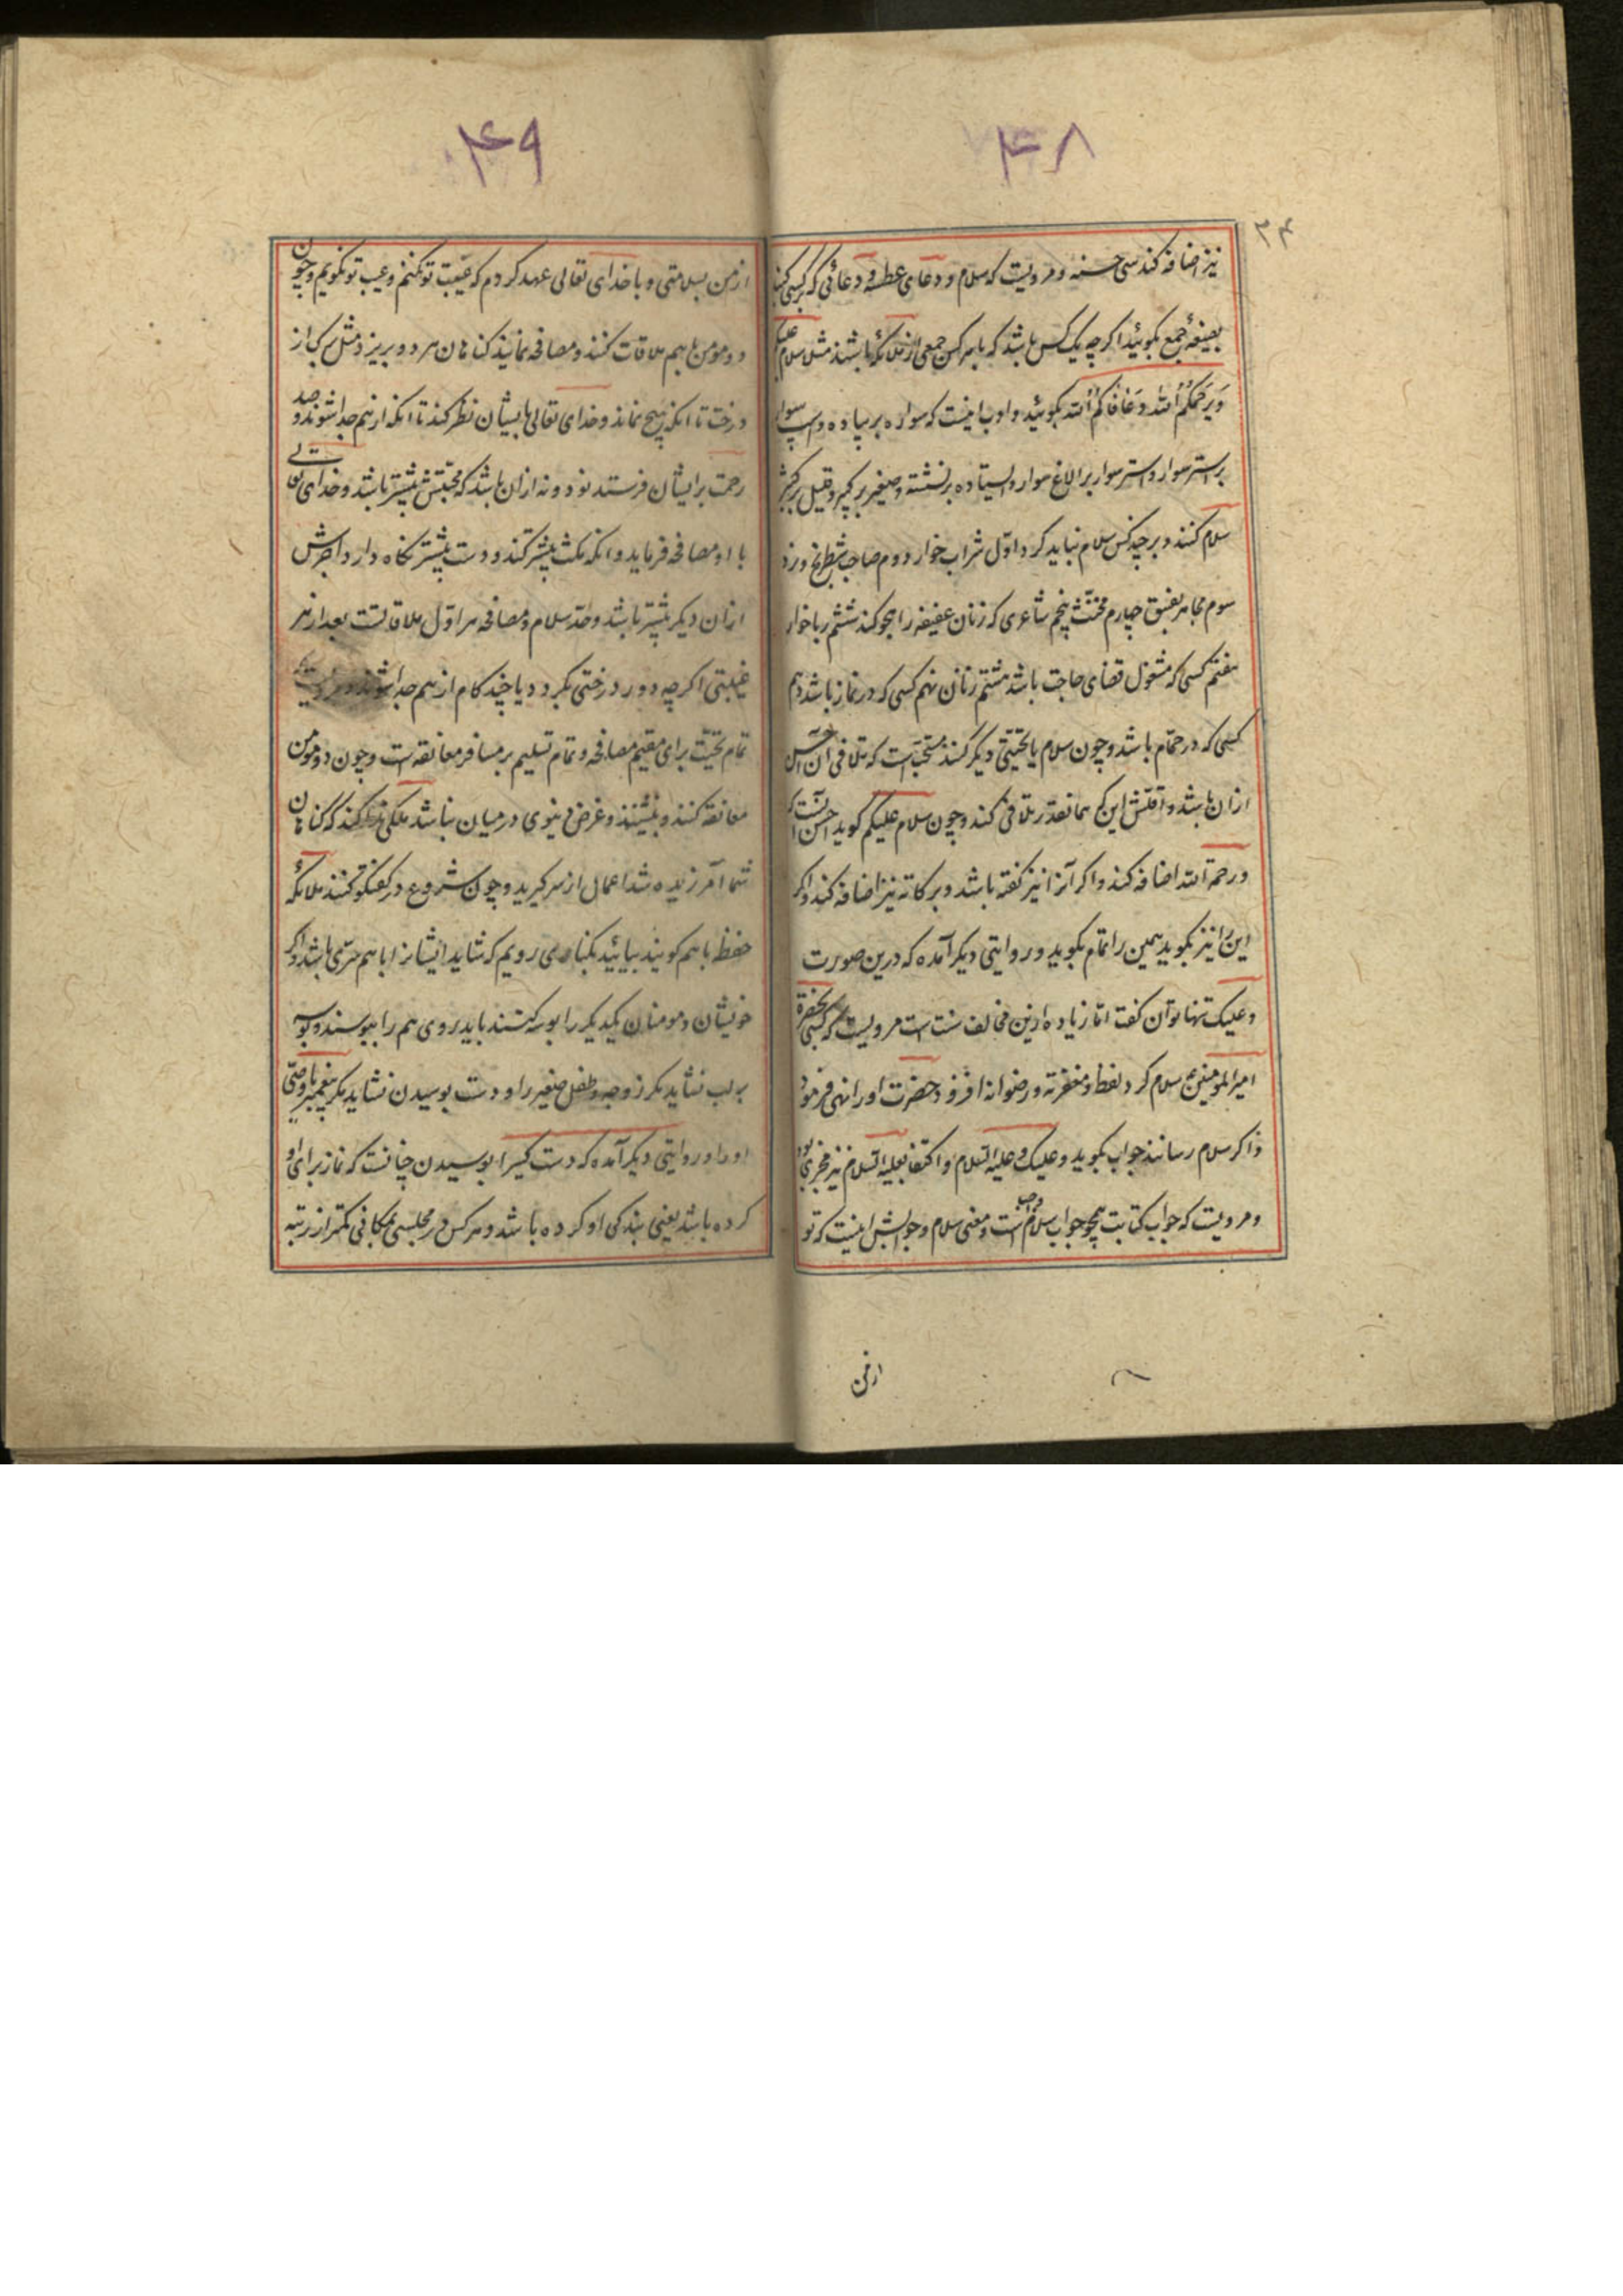 ۴۸
۲۴
نیز اضافه کند سی حسنه و مرویست که سلام و دعای عطسه و دعائی که بر کسی کنند
بصیغهٔ جمع بگوئید اگرچه یک کس باشد که با هر کس جمعی از ملائکه باشند مثل سلام علیکم
و یرحمکم الله و عافاکم الله بگوئید و ادب اینست که سواره بر پیاده و اسپ سوار
بر استر سوار و استر سوار بر الاغ سوار و ایستاده بر نشسته و صغیر بر کبیر و قلیل بر کثیر
سلام کنند و بر چند کس سلام نباید کرد اوّل شراب خوار دوم صاحب شطرنج و نرد
سوم مجاهر بفسق چهارم مخنّث پنجم شاعری که زنان عفیفه را هجو کند ششم ربا خوار
هفتم کسی که مشغول قضای حاجت باشد هشتم زنان نهم کسی که در نماز باشد دهم
کسی که در حمّام باشد و چون سلام یا تحیّتی دیگر کنند مستحبّ است که تلافی آن احسن
ازان باشد و اقلّش این که همانقدر تلافی کند و چون سلام علیکم گوید احسن آنست که
و رحمة الله اضافه کند و اگر آنرا نیز گفته باشد و برکاته نیز اضافه کند و اگر
این را نیز بگوید همین را تمام بگوید و روایتی دیگر آمده که درین صورت
و علیک تنها توان گفت امّا زیاده ازین مخالف سنت است مرویست که کسی بحضرة
امیر المومنین ع سلام کرد لفظ و مغفرته و رضوانه افزود حضرت او را نهی فرمود
و اگر سلام رسانند جواب بگوید و علیک و علیه السّلام و اکتفا بعلیه السّلام نیز مجزی بود
و مرویست که جواب کتابت همچو جواب سلام واجب است و معنی سلام و جوابش اینست که تو
ازمن
۴۹
از من بسلامتی و با خدای تعالی عهد کردم که غیبت تو نکنم و عیب تو نگویم و چون
دو مومن با هم ملاقات کنند و مصافحه نمایند گناهان هر دو بریزد مثل برک از
درخت تا آنکه هیچ نماند و خدای تعالی بایشان نظر کند تا آنکه از هم جدا شوند و صد
رحمت بر ایشان فرستد نود و نه ازان باشد که محبّتش بیشتر باشد و خدای تعالی
با او مصافحه فرماید و آنکه مکث بیشتر کند و دست بیشتر نگاه دارد اجرش
ازان دیگر بیشتر باشد و حدّ سلام و مصافحه هر اوّل ملاقاتست بعد از هر
غیبتی اگرچه دور درختی بگردد یا چند گام از هم جدا شوند و مرویست که
تمام تحیّت برای مقیم مصافحه و تمام تسلیم بر مسافر معانقه است و چون دو مومن
معانقه کنند و بنشینند و غرض دنیوی در میان نباشد ملکی ندا کند که گناهان
شما آمرزیده شد اعمال از سر گیرید و چون شروع در گفتگو کنند ملائکه
حفظ با هم گویند بیائید بکناره‌ی رویم که شاید ایشانرا با هم سرّی باشد و اگر
خویشان و مومنان یکدیگر را بوسه کنند باید روی هم را ببوسند و بوسه
بر لب نشاید مگر زوجه و طفل صغیر را و دست بوسیدن نشاید مگر پیغمبر یا وصیّ
او را و روایتی دیگر آمده که دست کسیرا بوسیدن چنانست که نماز برای او
کرده باشد یعنی بندگی او کرده باشد و هر کس در مجلسی بمکانی کمتر از رتبه